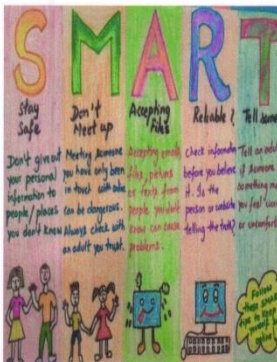 SMART
Stay
Safe
Don't give out
your personal
information to
people/places
you don't know
Don't
Meet up
Meeting someone
you have only been
in touch with online
can be dangerous.
Always check with
an adult you trust.
Accepting
Files
Accepting emails,
files, pictures
or texts from
people you don't
know can cause
problems.
Reliable?
Check information
before you believe
it. Is the
person or website
telling the truth?
Tell someone
Tell an adult
if someone or
something makes
you feel worried
or uncomfortable
Follow
these
tips to